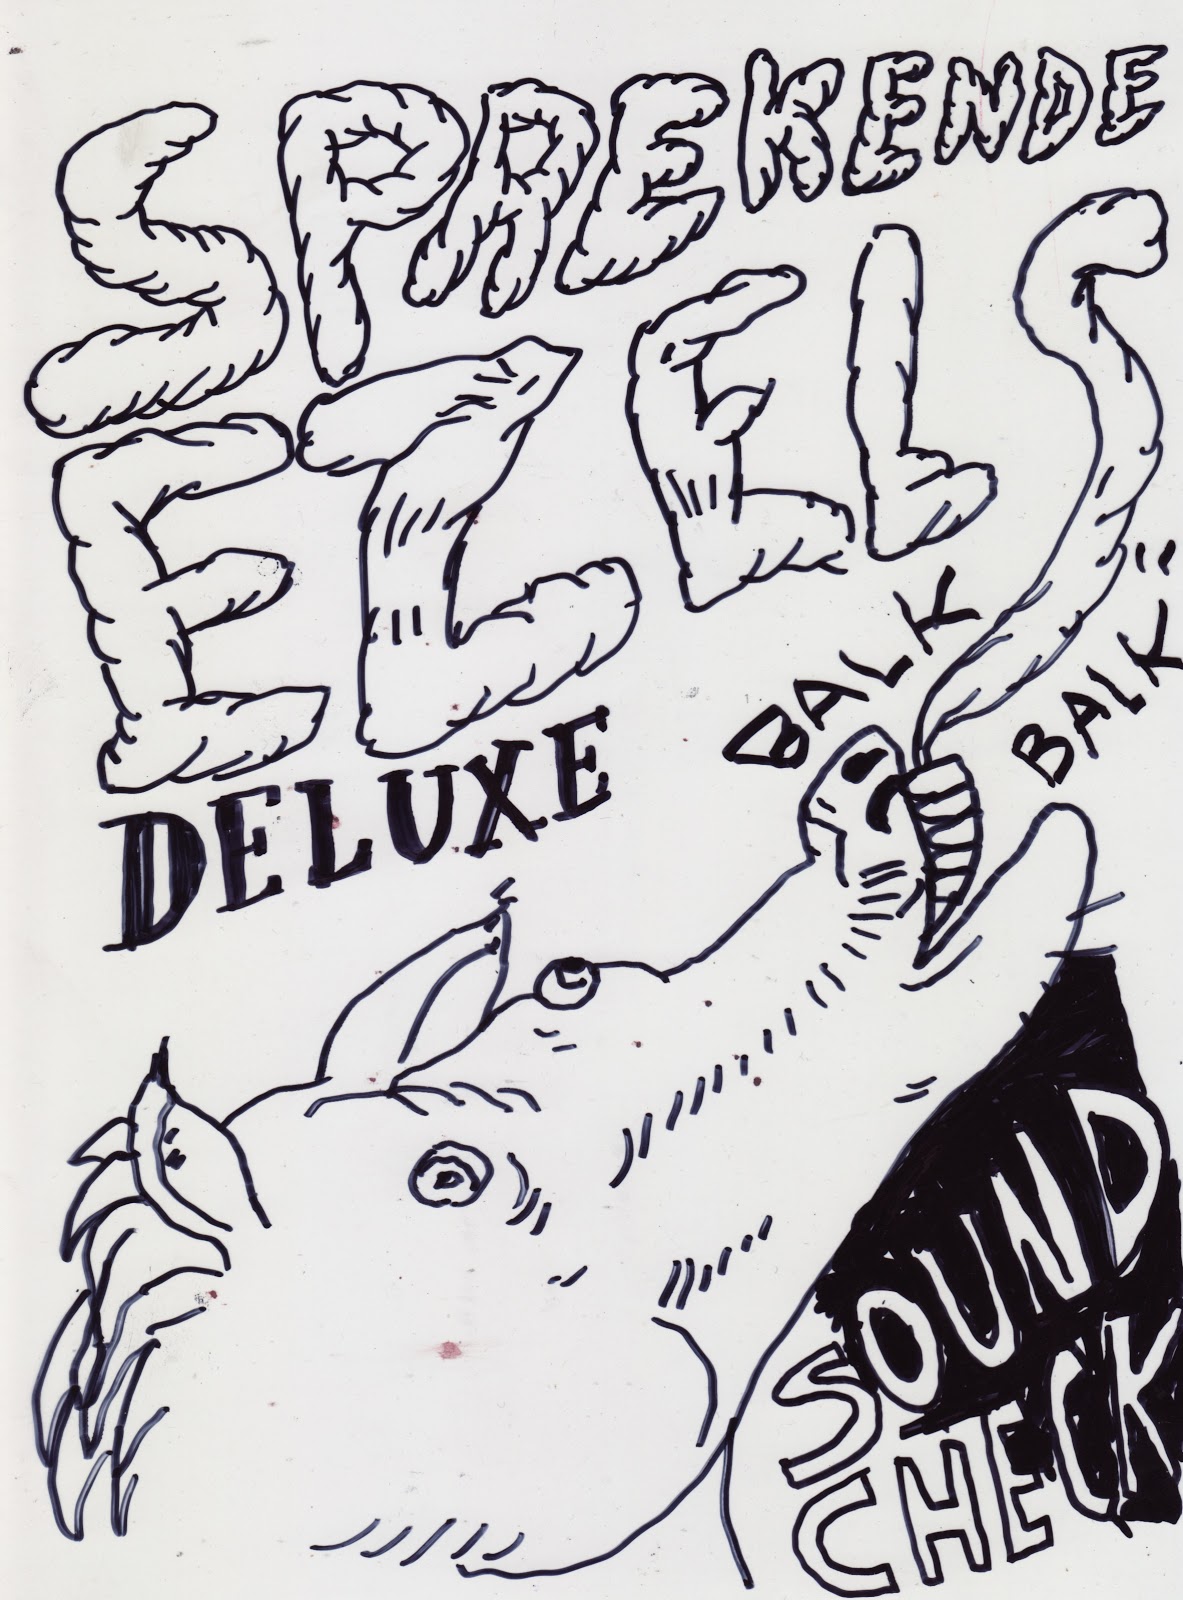 SPREKENDE
EZELS
DELUXE
BALK
BALK
SOUND
CHECK